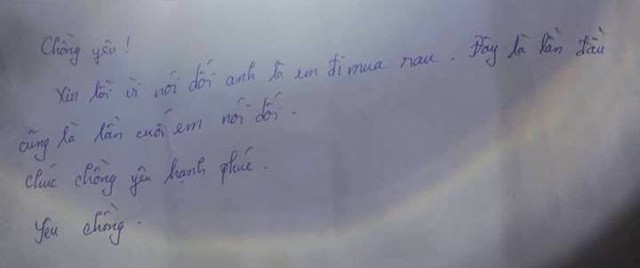 Chồng yêu!
Xin lỗi vì nói dối anh là em đi mua rau. Đây là lần đầu
cũng là lần cuối em nói dối.
Chúc chồng yêu hạnh phúc.
Yêu chồng.